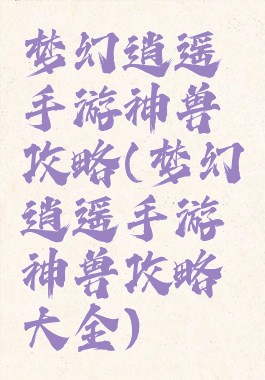 梦幻逍遥
手游神兽
攻略(梦幻
逍遥手游
神兽攻略
大全)